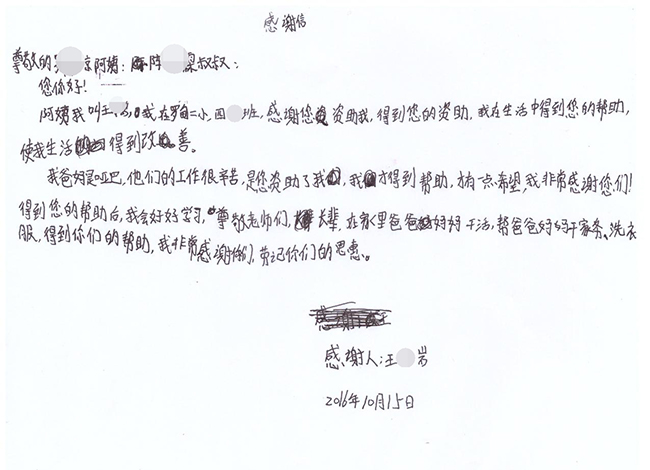 感谢信
尊敬的 京阿姨: 陈 梁叔叔:
您你好!
阿姨我叫王 ,我在罗自二小四 班,感谢您资助我,得到您的资助,我在生活中得到您的帮助,
使我生活得到改善。
我爸妈是哑巴,他们的工作很辛苦,是您资助了我,我才得到帮助,才有一点希望,我非常感谢您们!
得到您的帮助后,我会好好学习,尊敬老师们,长辈,在家里爸爸妈妈干活,帮爸爸妈妈干家务、洗衣
服,得到你们的帮助,我非常感谢你们,劳记你们的思惠。
感谢人:王 岩
2016年10月15日